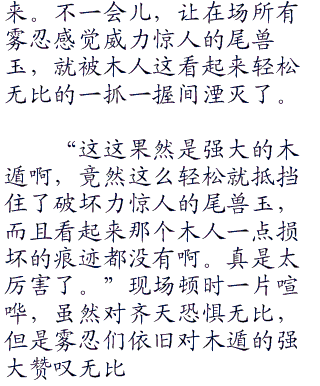 来。不一会儿，让在场所有
雾忍感觉威力惊人的尾兽
玉，就被木人这看起来轻松
无比的一抓一握间湮灭了。
“这这果然是强大的木
遁啊，竟然这么轻松就抵挡
住了破坏力惊人的尾兽玉，
而且看起来那个木人一点损
坏的痕迹都没有啊。真是太
厉害了。”现场顿时一片喧
哗，虽然对齐天恐惧无比，
但是雾忍们依旧对木遁的强
大赞叹无比